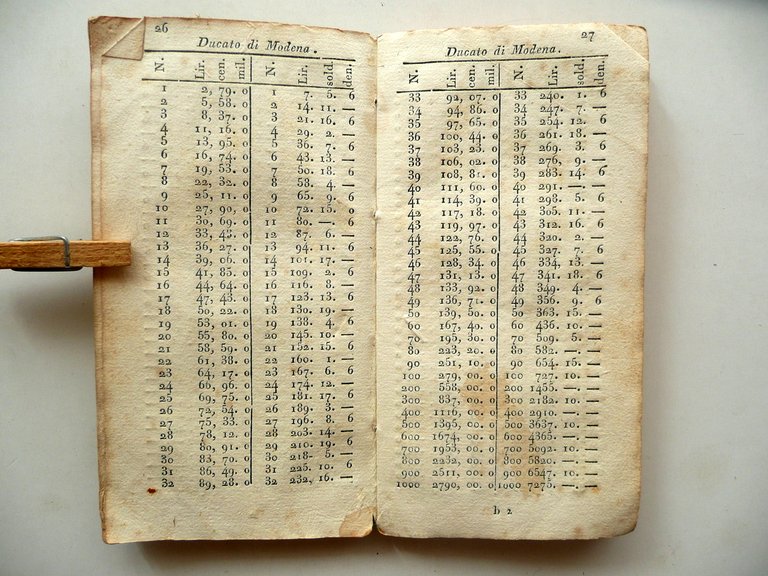 26
Ducato di Modena.
N. Lir. cen. mil. N. Lir. sold. den.
1 2, 79. 0 1 7. 5. 6
2 5, 58. 0 2 14. 11. —
3 8, 37. 0 3 21. 16. 6
4 11, 16. 0 4 29. 2. —
5 13, 95. 0 5 36. 7. 6
6 16, 74. 0 6 43. 13. —
7 19, 53. 0 7 50. 18. 6
8 22, 32. 0 8 58. 4. —
9 25, 11. 0 9 65. 9. 6
10 27, 90. 0 10 72. 15. 0
11 30, 69. 0 11 80. —. 6
12 33, 48. 0 12 87. 6. —
13 36, 27. 0 13 94. 11. 6
14 39, 06. 0 14 101. 17. —
15 41, 85. 0 15 109. 2. 6
16 44, 64. 0 16 116. 8. —
17 47, 43. 0 17 123. 13. 6
18 50, 22. 0 18 130. 19. —
19 53, 01. 0 19 138. 4. 6
20 55, 80. 0 20 145. 10. —
21 58, 59. 0 21 152. 15. 6
22 61, 38. 0 22 160. 1. —
23 64, 17. 0 23 167. 6. 6
24 66, 96. 0 24 174. 12. —
25 69, 75. 0 25 181. 17. 6
26 72, 54. 0 26 189. 3. —
27 75, 33. 0 27 196. 8. 6
28 78, 12. 0 28 203. 14. —
29 80, 91. 0 29 210. 19. 6
30 83, 70. 0 30 218- 5. —
31 86, 49. 0 31 225. 10. 6
32 89, 28. 0 32 232, 16. —
27
Ducato di Modena.
N. Lir. cen. mil. N. Lir. sold. den.
33 92, 07. 0 33 240. 1. 6
34 94, 86. 0 34 247. 7. —
35 97, 65. 0 35 254. 12. 6
36 100, 44. 0 36 261. 18. —
37 103, 23. 0 37 269. 3. 6
38 106, 02. 0 38 276, 9. —
39 108, 81. 0 39 283. 14. 6
40 111, 60. 0 40 291. —. —
41 114, 39. 0 41 298. 5. 6
42 117, 18. 0 42 305. 11. —
43 119, 97. 0 43 312. 16. 6
44 122, 76. 0 44 320. 2. —
45 125, 55. 0 45 327. 7. 6
46 128, 34. 0 46 334, 13. —
47 131, 13. 0 47 341. 18. 6
48 133, 92. 0 48 349. 4. —
49 136, 71. 0 49 356. 9. 6
50 139, 50. 0 50 363. 15. —
60 167, 40. 0 60 436. 10. —
70 195, 30. 0 70 509. 5. —
80 223, 20. 0 80 582. —. —
90 251, 10. 0 90 654. 15. —
100 279, 00. 0 100 727. 10. —
200 558, 00. 0 200 1455. —. —
300 837, 00. 0 300 2182. 10. —
400 1116, 00. 0 400 2910. —. —
500 1395, 00. 0 500 3637. 10. —
600 1674, 00. 0 600 4365. —. —
700 1953, 00. 0 700 5092. 10. —
800 2232, 00. 0 800 5820. —. —
900 2511, 00. 0 900 6547. 10. —
1000 2790, 00. 0 1000 7275. —. —
b 2